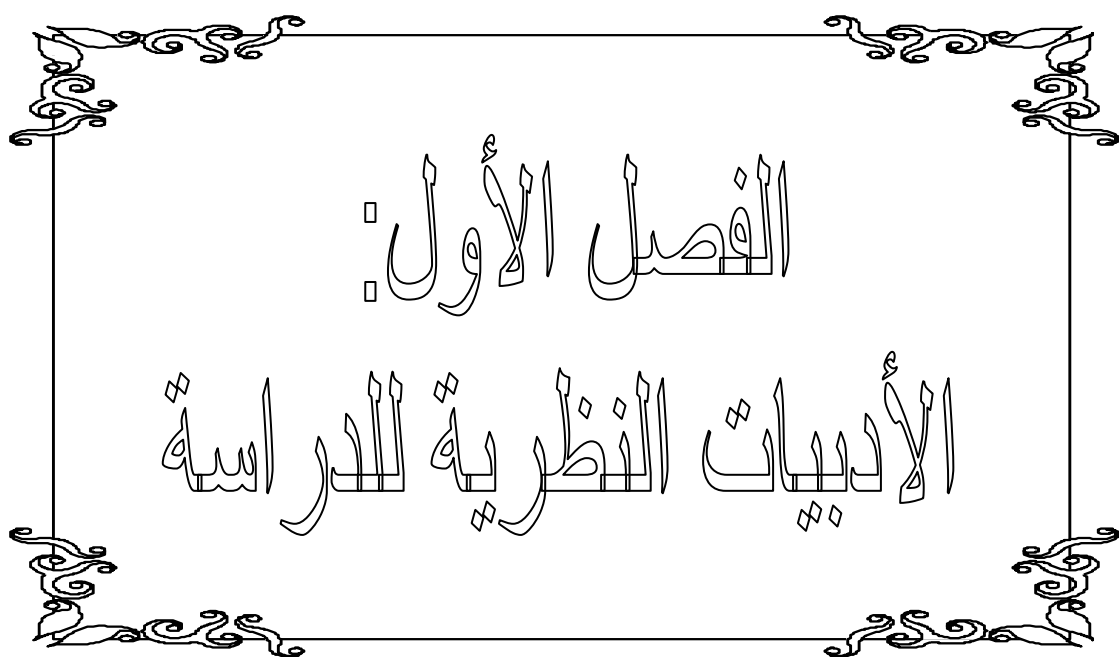 الفصل الأول:
الأدبيات النظرية للدراسة